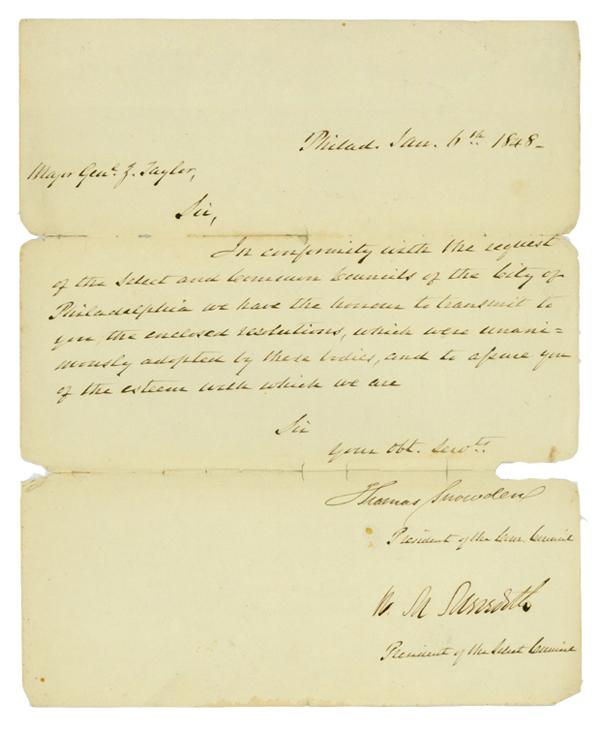 Philad. Jan. 6th. 1848-
Major Genl. Z. Taylor,
Sir,
In conformity with the request
of the Select and Common Councils of the City of
Philadelphia we have the honour to transmit to
you, the enclosed resolutions, which were unani=
mously adopted by these bodies, and to assure you
of the esteem with which we are
Sir
Your Obt. Servts.
Thomas Snowden
President of the Com. Council
W. M. Meredith
President of the Select Council